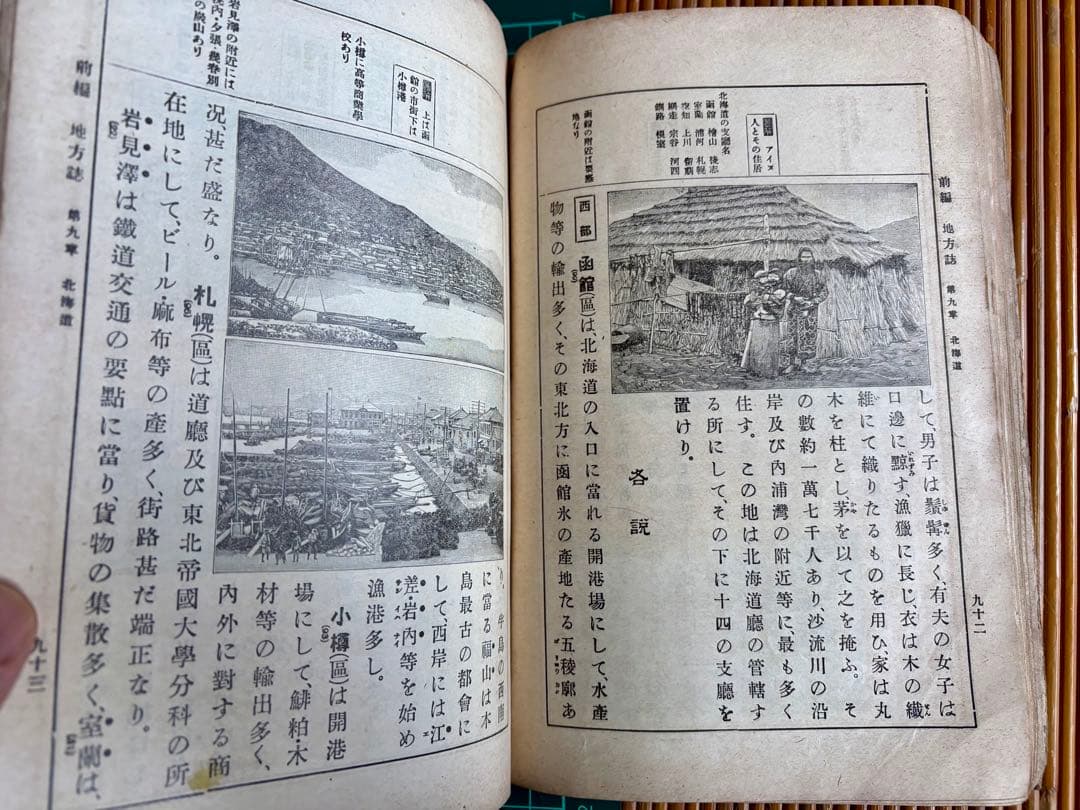 前編 地方誌 第九章 北海道
九十二
アイヌ
人とその住居
北海道の支廳名
函館 檜山 後志
室蘭 浦河 札幌
空知 上川 留萌
網走 宗谷 河西
釧路 根室
函館の附近は要塞
地なり
して、男子は鬚髯多く、有夫の女子は
口邊に黥す、漁獵に長じ、衣は木の纖
維にて織りたるものを用ひ、家は丸
木を柱とし、茅を以て之を掩ふ。そ
の數約一萬七千人あり、沙流川の沿
岸及び內浦灣の附近等に、最も多く
住す。この地は北海道廳の管轄す
る所にして、その下に十四の支廳を
置けり。
各說
西部 函館(區)は、北海道の入口に當れる開港場にして、水產
物等の輸出多く、その東北方に函館氷の產地たる五稜廓あ
上は函
館の市街下は
小樽港
小樽に高等商業學
校あり
岩見澤の附近には
幌內・夕張・幾春別
の炭山あり
り、半島の西南
に當る福山は本
島最古の都會に
して、西岸には江
差・岩內等を始め
漁港多し。
小樽(區)は開港
場にして、鯡粕・木
材等の輸出多く、
內外に對する商
況、甚だ盛なり。札幌(區)は道廳及び東北帝國大學分科の所
在地にして、ビール・麻布等の產多く、街路甚だ端正なり。
岩見澤は鐵道交通の要點に當り、貨物の集散多く、室蘭は、
前編 地方誌 第九章 北海道
九十三